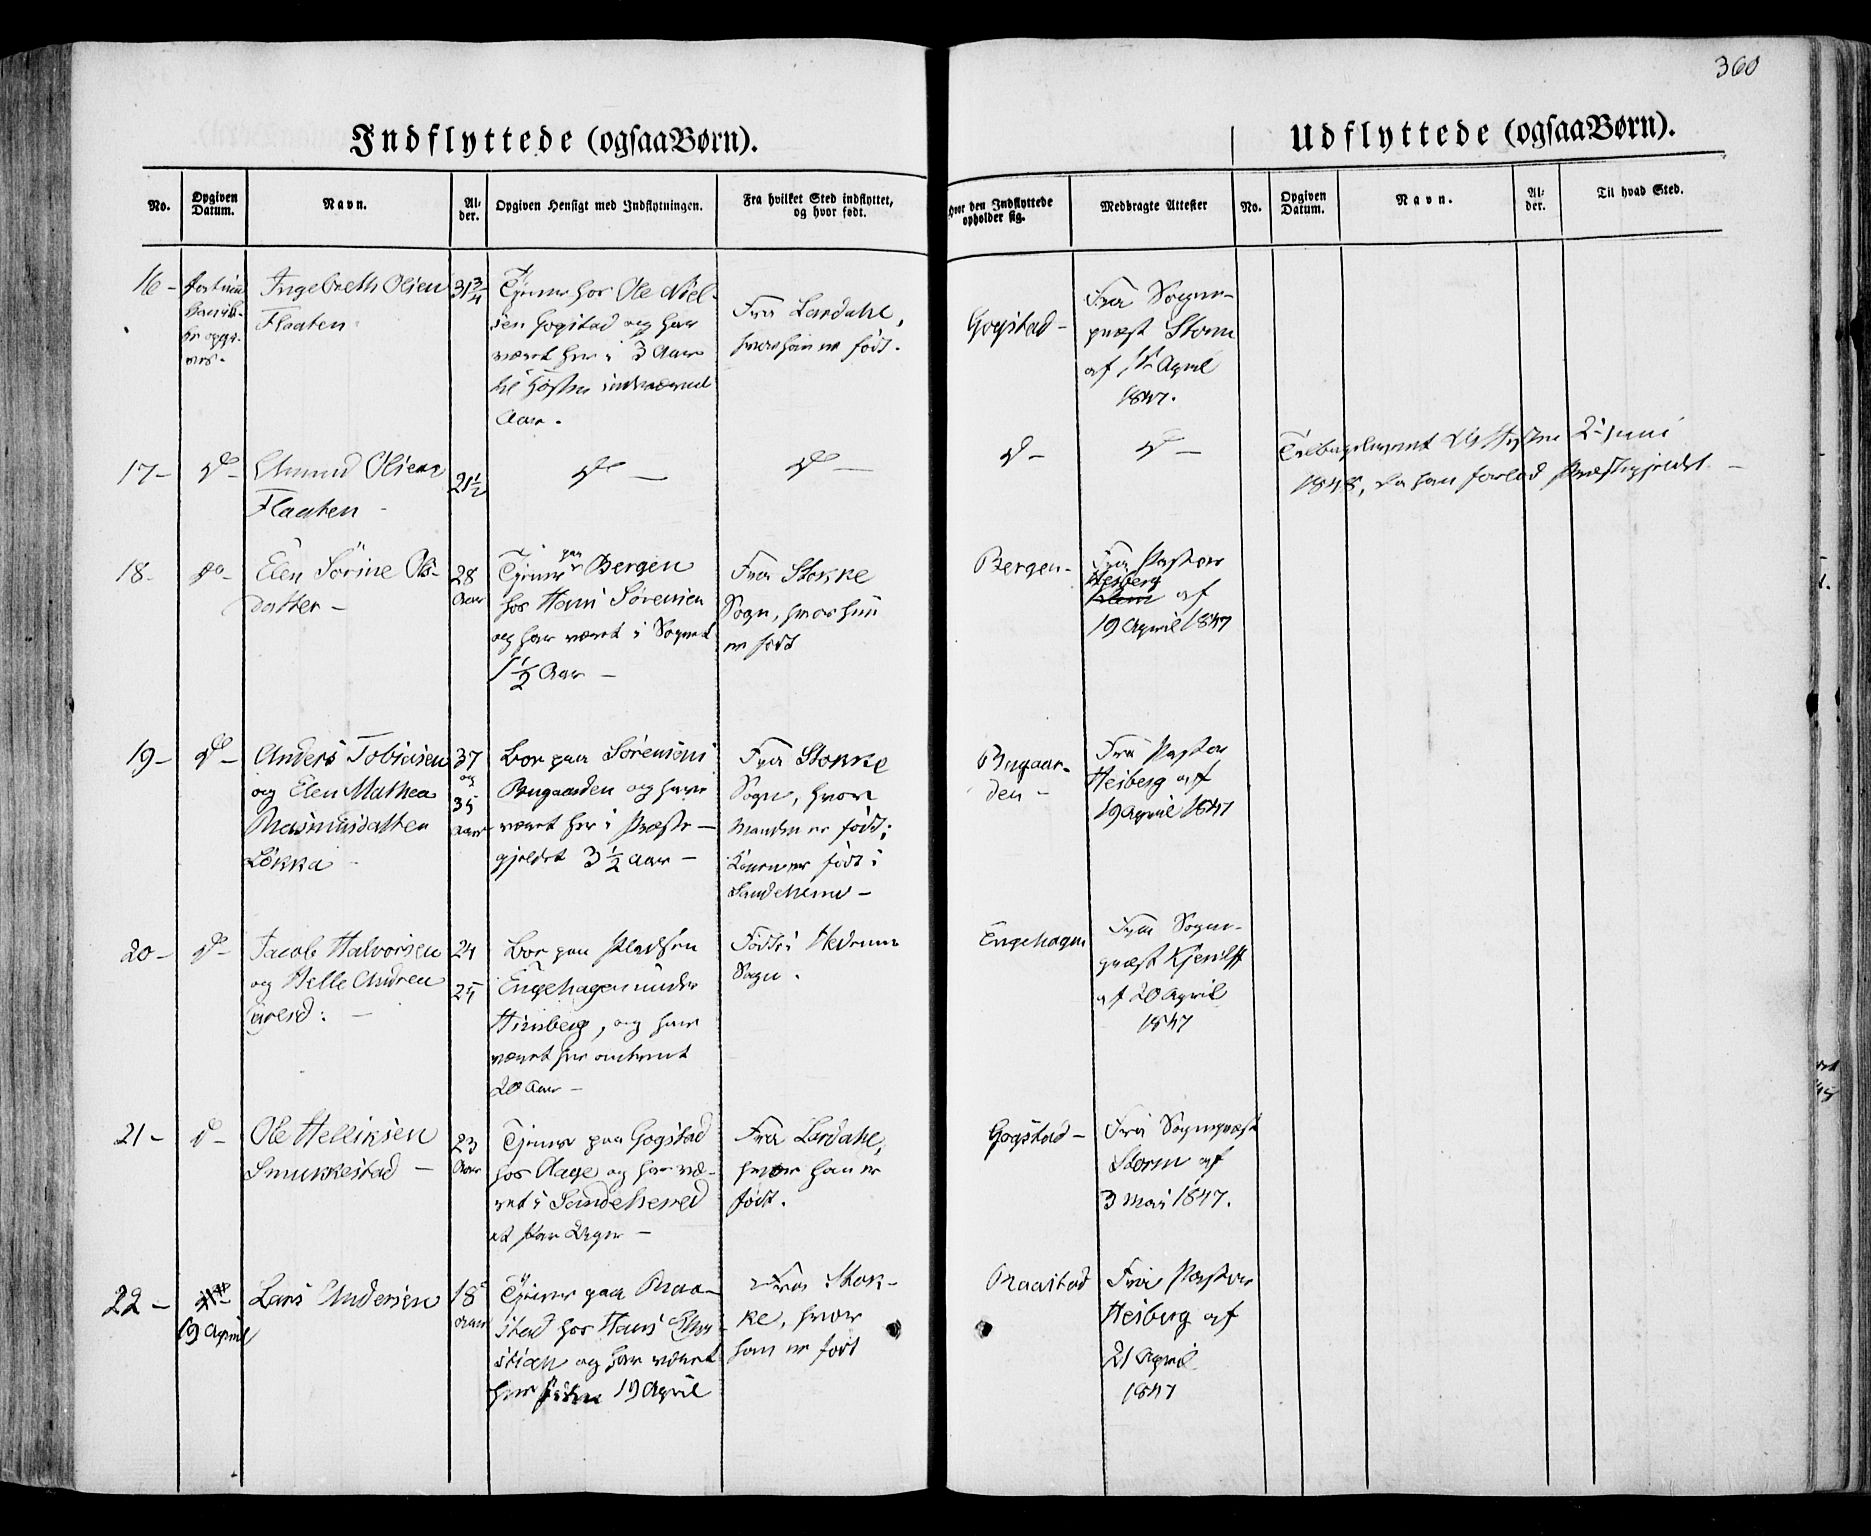 360
Indflyttede (ogsaa Børn).
Udflyttede (ogsaa Børn).
No.
Opgiven Datum.
Navn.
Al-
der.
Opgiven Hensigt med Indflytningen.
Fra hvilket Sted indflyttet,
og hvor født.
Hvor den Indflyttede
opholder sig.
Medbragte Attester
No.
Opgiven
Datum.
Navn.
Al-
der.
Til hvad Sted.
16 -
Ingebreth Olsen
Flaaten
31 3/4
Tjener hos Ole Niel-
sen Gogstad og har
været her i 3 Aar
til Høsten indeværend
Aar.
Fra Lardahl,
hvor han er født.
Gogstad -
Fra Sogne-
præst Storm
af April
1847.
17 -
do -
Olsen
Flaaten -
21 1/2
do -
do -
do -
do -
Tilbageleveret Juni
1848, da han forlod Præstegjeldet -
18 -
do -
Elen Sörine Ols-
datter -
28
Aar
Tjener paa Bergen
hos Hans Sørensen
og har været i Sognet
1 1/2 Aar -
Fra Stokke
Sogn, hvor hun
er født
Bergen -
Fra Pastor
Heiberg
af
19 April 1847
19 -
do -
Anders Tobiasen
og Elen Mathea
Rasmusdatter
Løkka -
37
og
35
Aar
Bor paa Sørensens
Bugaarden og har
været her i Præste-
gjeldet 3 1/2 Aar -
Fra Stokke
Sogn, hvor
Manden er født;
Konen er født i
Sandeherred -
Bugaar-
den -
Fra Pastor
Heiberg af
19 April 1847
20 -
do -
Jacob Halvorsen
og Helle Andrea
Larsd: -
24
25
Bor paa Pladsen
Engehagen under
Himberg, og har
været her omtrent
20 Aar -
Født i Hedrum
Sogn.
Engehagen
Fra Sogne-
præst Kjerulff
af 20 April
1847
21 -
do -
Ole Helliksen
Smukkestad -
23
Aar
Tjener paa Gogstad
hos Aage og har væ-
ret i Sandeherred
et Par Uger -
Fra Lardahl,
hvor han er
født.
Gogstad -
Fra Sognepræst
Storm af
3 Mai 1847.
22 -
19 April
Lars Andersen
18
Aar
Tjener paa Raa-
stad hos Hans Chri-
stian og har været
her siden 19 April
Fra Stok-
ke, hvor
han er født
Raastad
Fra Pastor
Heiberg af
21 April
1847